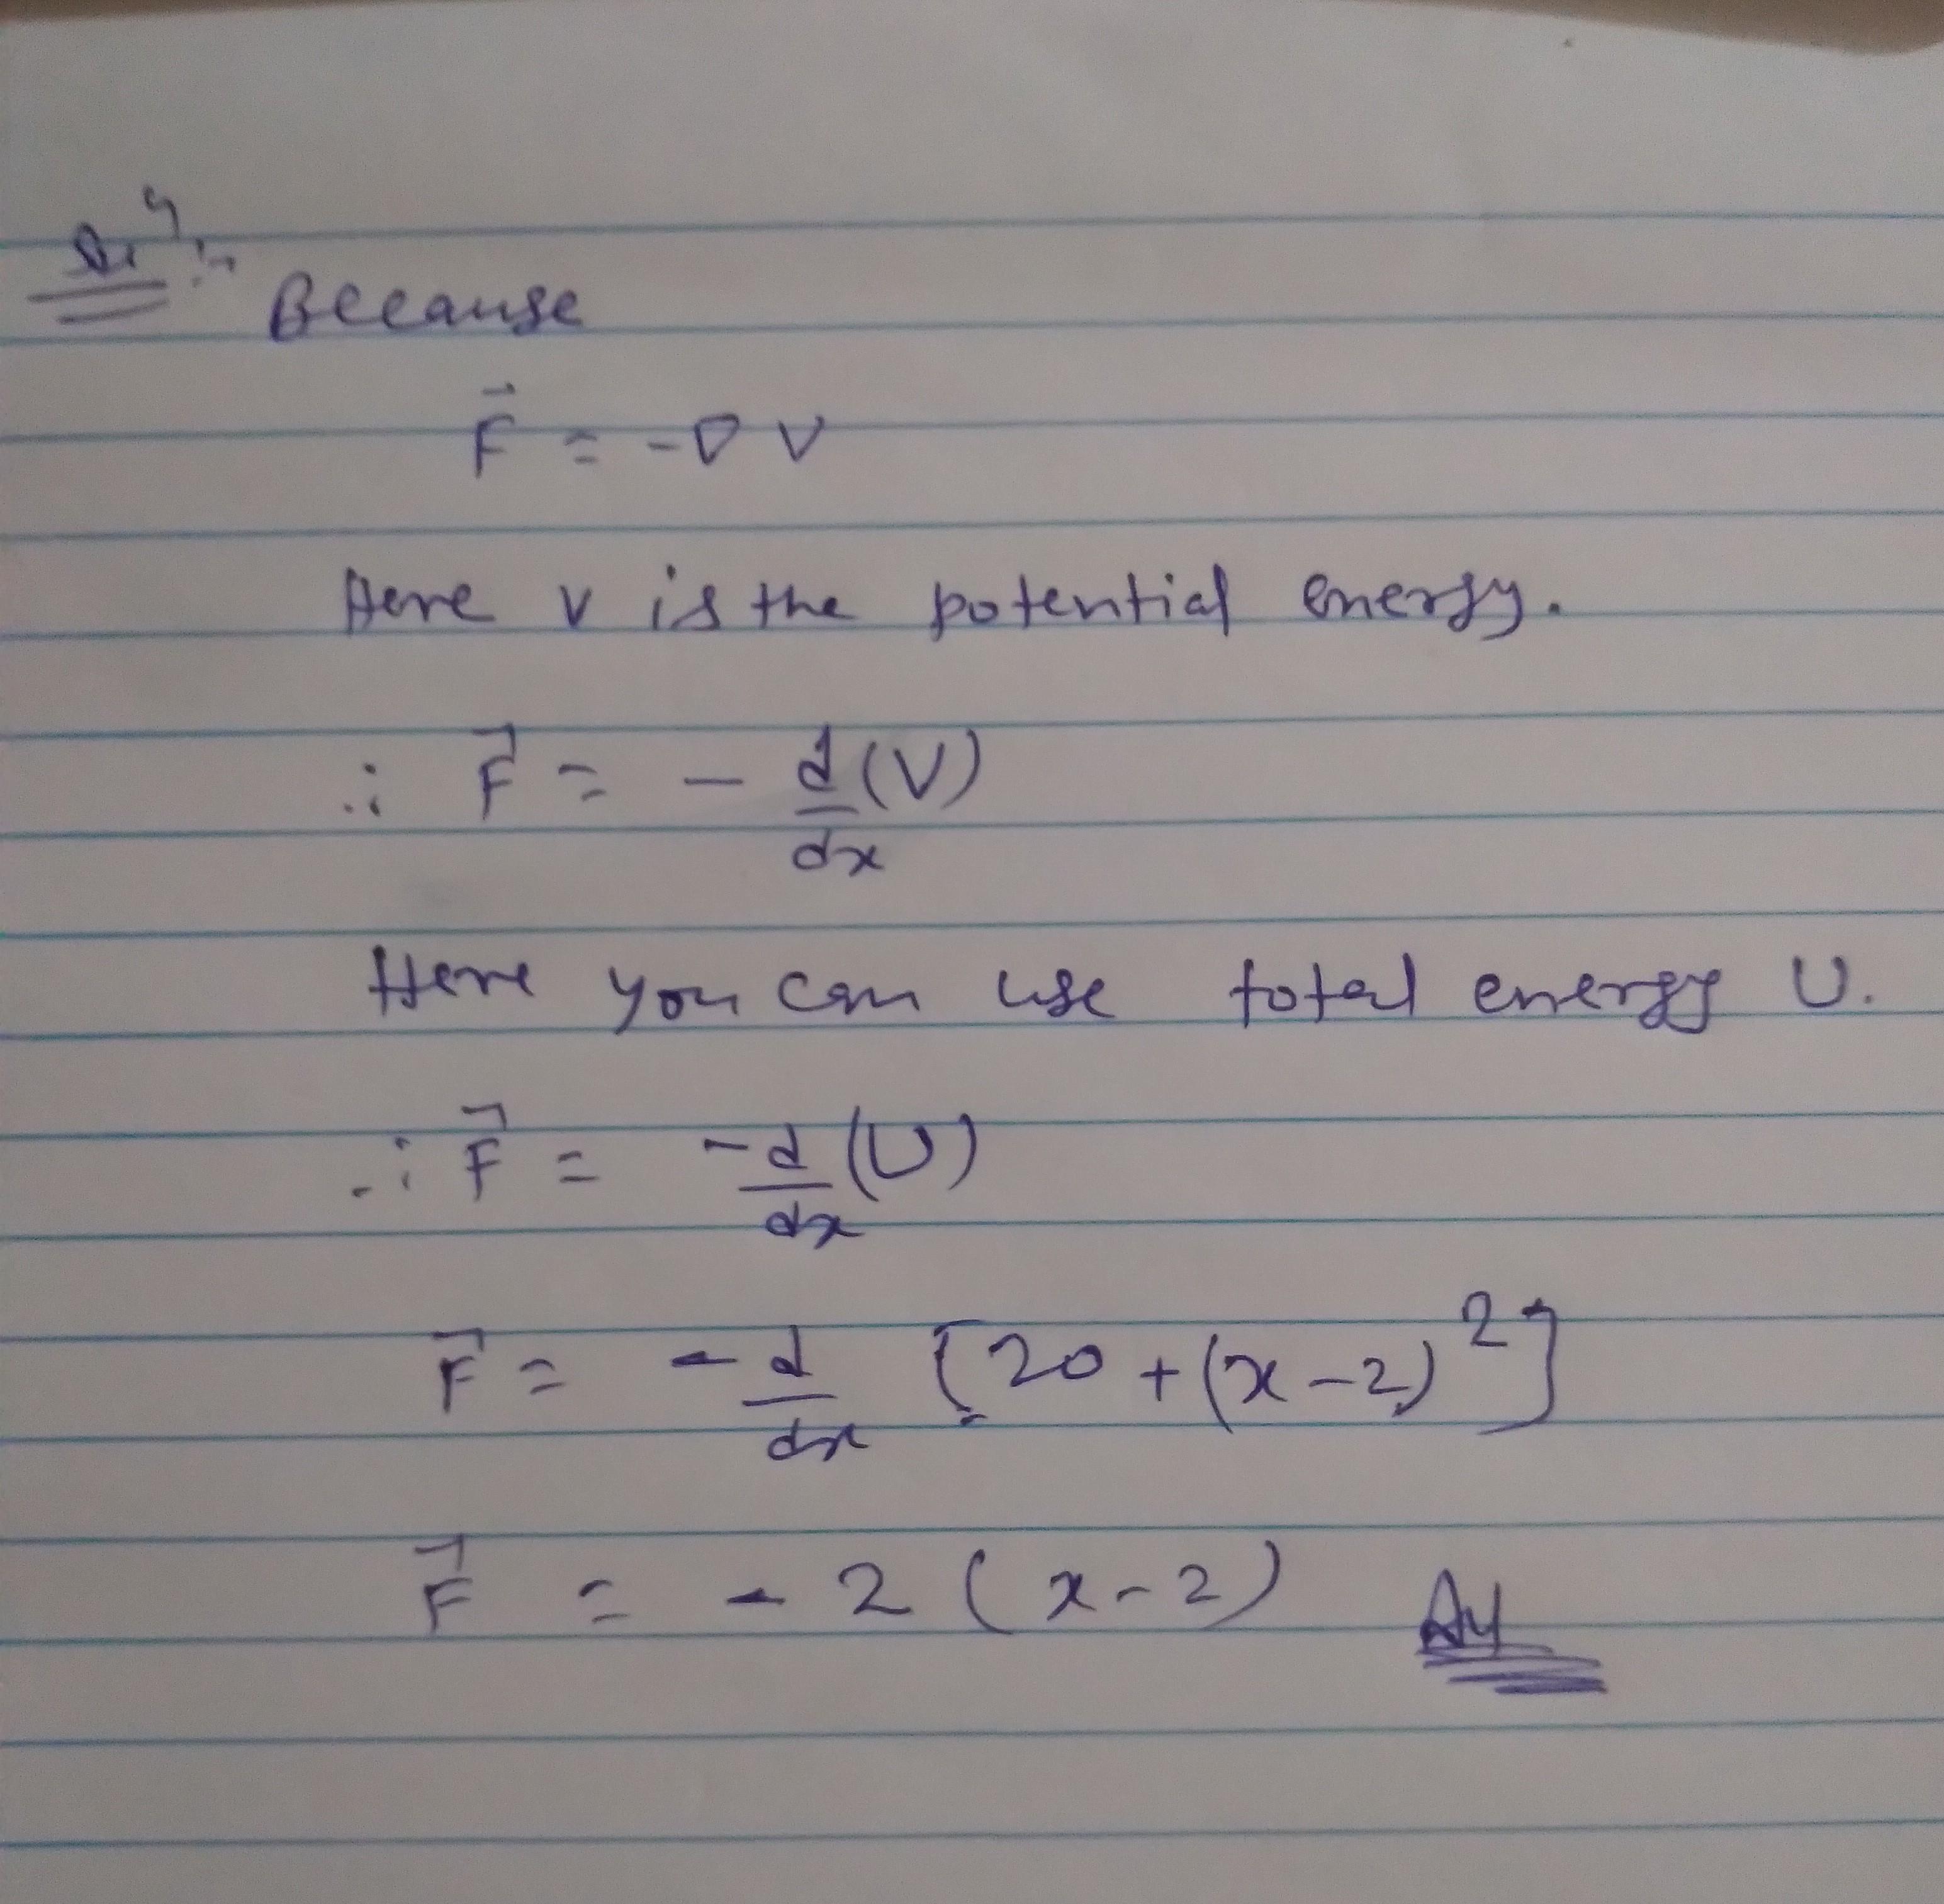 Because
F⃗ = -∇V
Here V is the potential energy.
∴ F⃗ = - d/dx (V)
Here you can use total energy U.
∴ F⃗ = -d/dx (U)
F⃗ = -d/dx [20 + (x-2)²]
F⃗ = -2(x-2)